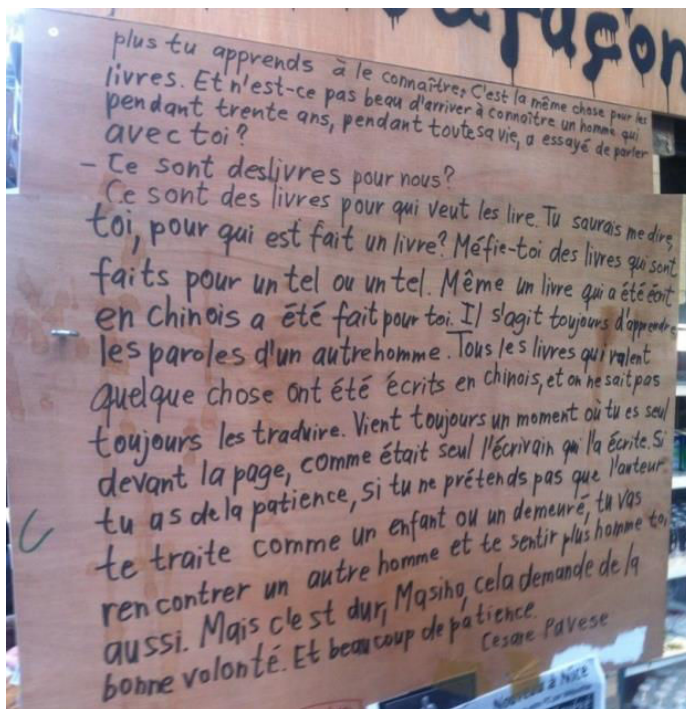 façon
plus tu apprends à le connaître, C'est la même chose pour les
livres. Et n'est-ce pas beau d'arriver à connoître un homme qui
pendant trente ans, pendant toute sa vie, a essayé de parler
avec toi?
- Ce sont des livres pour nous?
Ce sont des livres pour qui veut les lire. Tu saurais me dire,
toi, pour qui est fait un livre? Méfie-toi des livres qui sont
faits pour un tel ou un tel. Même un livre qui a été écrit
en chinois a été fait pour toi. Il s'agit toujours d'apprendre
les paroles d'un autre homme. Tous les livres qui valent
quelque chose ont été écrits en chinois, et on ne sait pas
toujours les traduire. Vient toujours un moment où tu es seul
devant la page, comme était seul l'écrivain qui l'a écrite. Si
tu as de la patience, si tu ne prétends pas que l'auteur
te traite comme un enfant ou un demeuré, tu vas
rencontrer un autre homme et te sentir plus homme toi
aussi. Mais c'est dur, Masino, cela demande de la
bonne volonté. Et beaucoup de patience.
Cesare Pavese
Nouveau à Nice